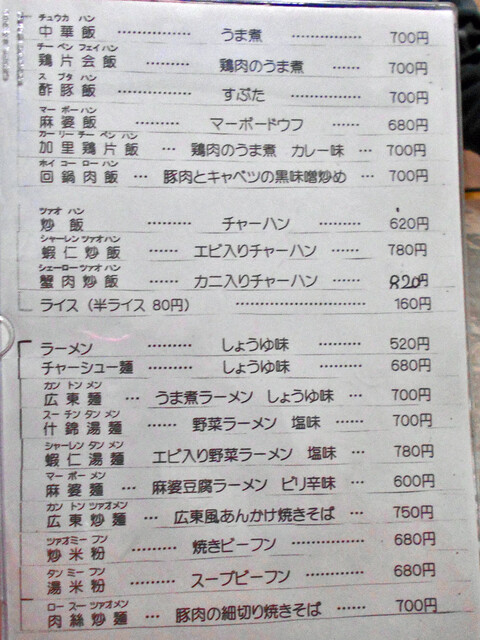 チュウカ ハン
中華飯 ‥‥‥‥‥ うま煮 ‥‥‥‥‥ 700円
チー ペン フェイハン
鶏片会飯 ‥‥‥ 鶏肉のうま煮 ‥‥‥ 700円
ス ブタ ハン
酢豚飯 ‥‥‥‥‥ すぶた ‥‥‥‥‥ 700円
マー ボーハン
麻婆飯 ‥‥‥‥ マーボードウフ ‥‥‥ 680円
カーリーチー ペン ハン
加里鶏片飯 ‥‥ 鶏肉のうま煮 カレー味 ‥‥ 700円
ホイ コー ローハン
回鍋肉飯 ‥‥ 豚肉とキャベツの黒味噌炒め ‥‥ 700円
ツァオ ハン
炒飯 ‥‥‥‥ チャーハン ‥‥‥‥ 620円
シャーレンツァオハン
蝦仁炒飯 ‥‥‥ エビ入りチャーハン ‥‥‥ 780円
シェーローツァオハン
蟹肉炒飯 ‥‥‥ カニ入りチャーハン ‥‥‥ 820円
ライス (半ライス 80円) ‥‥‥‥‥‥‥‥ 160円
ラーメン ‥‥‥‥ しょうゆ味 ‥‥‥‥ 520円
チャーシュー麺 ‥‥‥‥ しょうゆ味 ‥‥‥‥ 680円
カン トン メン
広東麺 ‥‥ うま煮ラーメン しょうゆ味 ‥‥ 700円
スー チン タン メン
什錦湯麺 ‥‥‥ 野菜ラーメン 塩味 ‥‥‥ 700円
シャーレン タン メン
蝦仁湯麺 エビ入り野菜ラーメン 塩味 ‥‥ 780円
マー ボー メン
麻婆麺 ‥‥ 麻婆豆腐ラーメン ピリ辛味 ‥‥ 600円
カン トン ツァオメン
広東炒麺 ‥‥ 広東風あんかけ焼きそば ‥‥‥ 750円
ツァオミー フン
炒米粉 ‥‥‥‥ 焼きビーフン ‥‥‥‥ 680円
タン ミー フン
湯米粉 ‥‥‥‥ スープビーフン ‥‥‥‥ 680円
ロー スー ツァオメン
肉絲炒麺 ‥‥ 豚肉の細切り焼きそば ‥‥‥ 700円